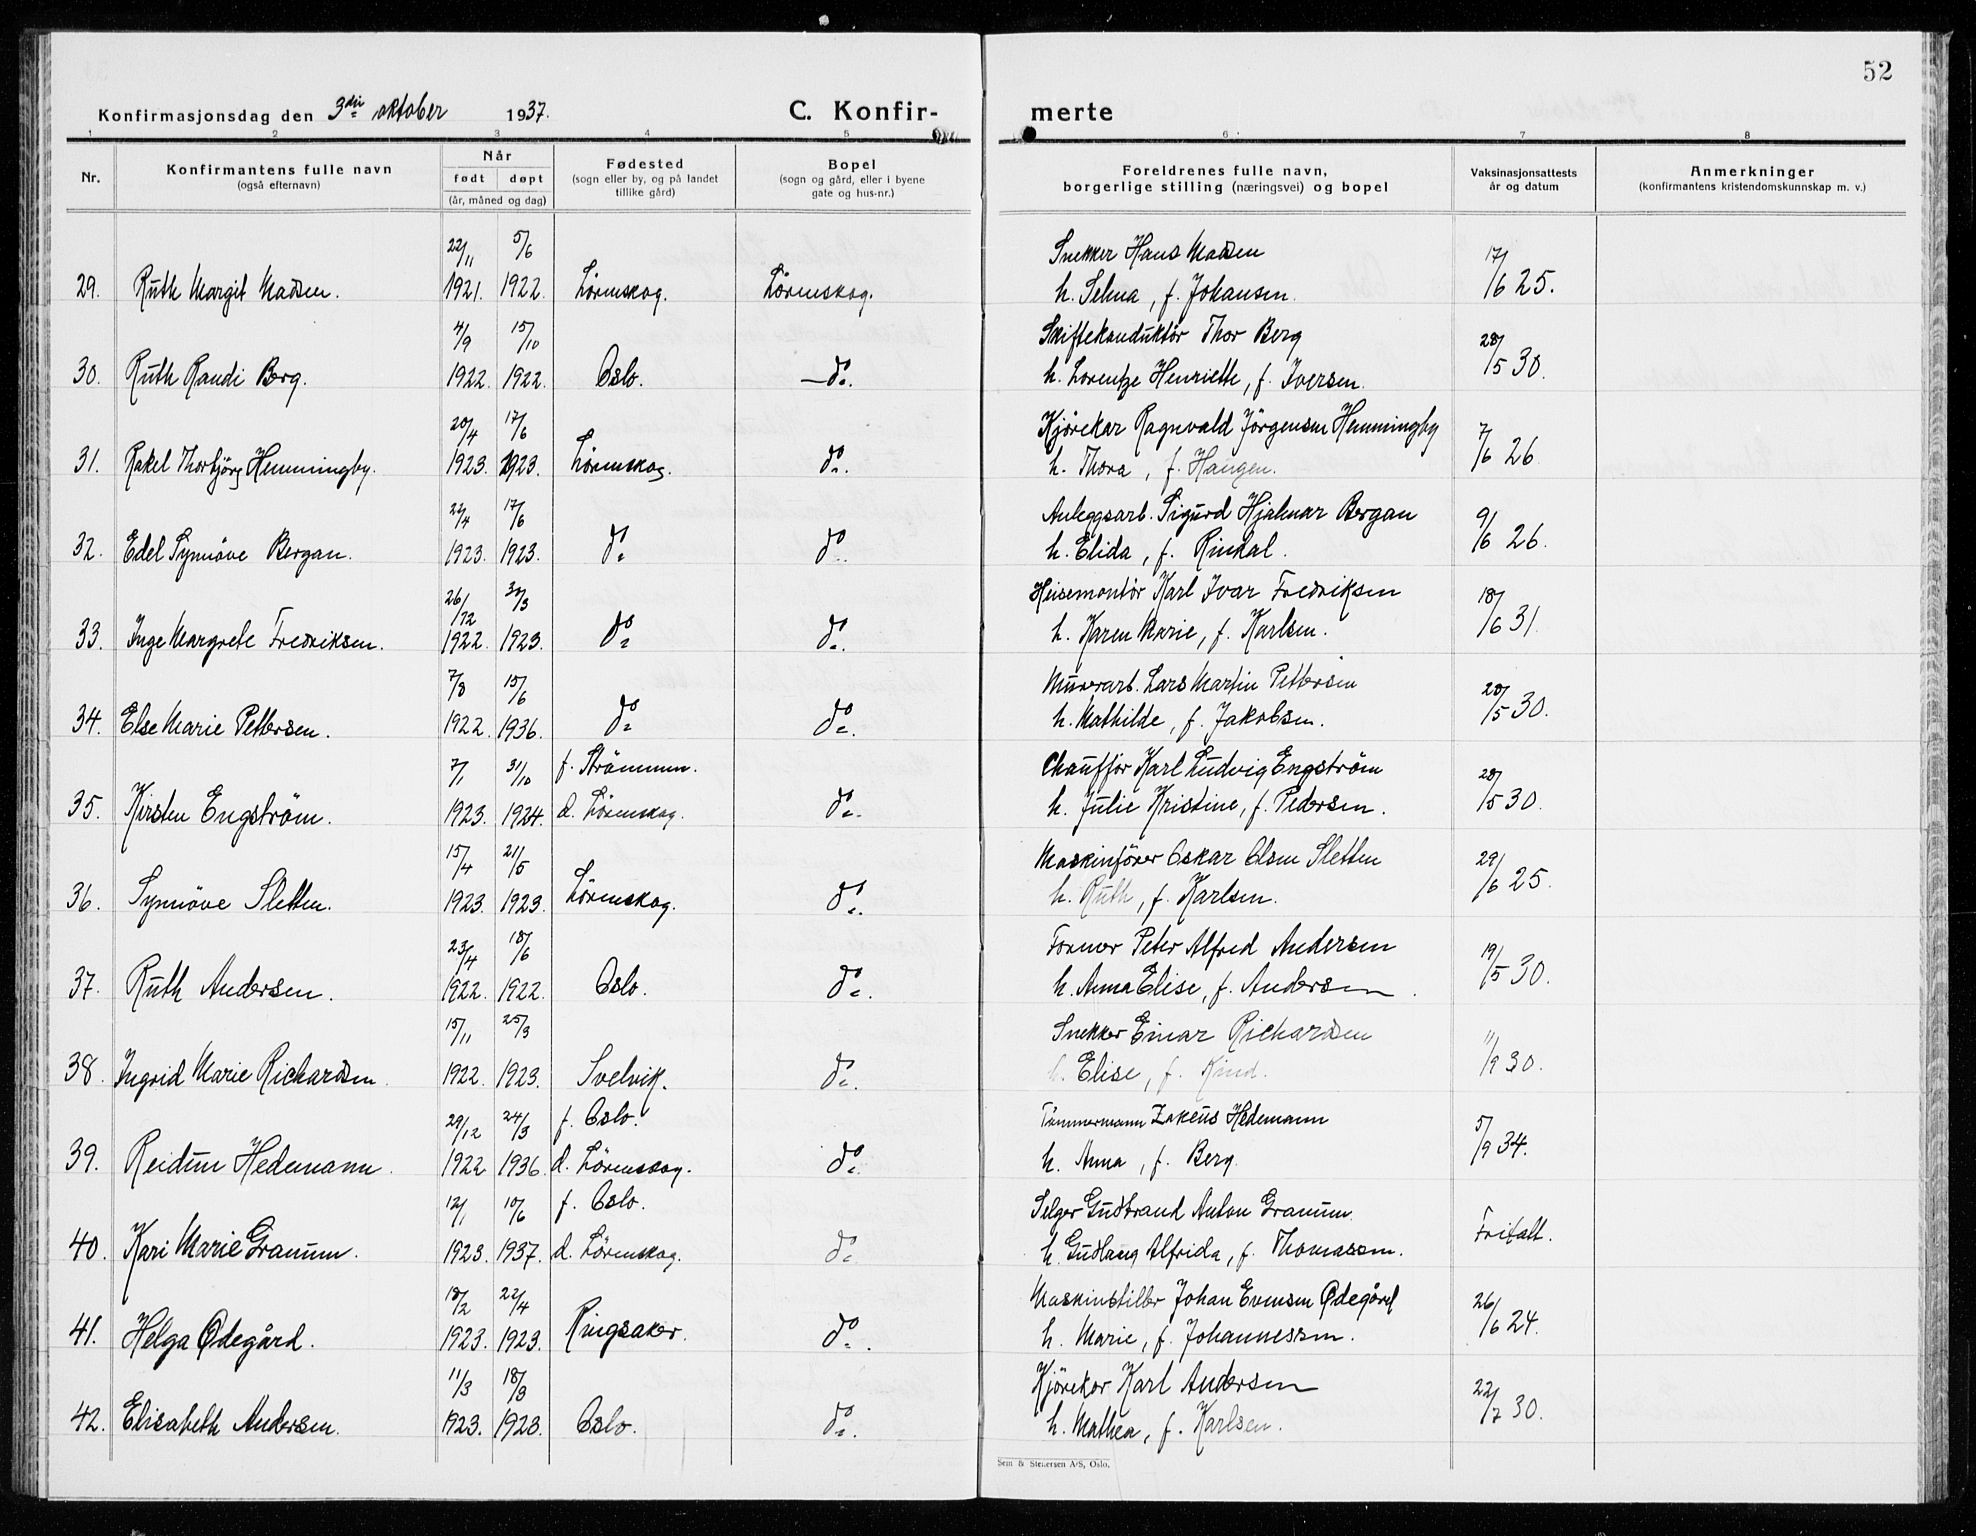 52
Konfirmasjonsdag den 3die oktober 1937.
C. Konfirmerte
1 2 3 4 5 6 7 8
Nr.
Konfirmantens fulle navn
(også efternavn)
Når
født døpt
(år, måned og dag)
Fødested
(sogn eller by, og på landet
tillike gård)
Bopel
(sogn og gård, eller i byene
gate og hus-nr.)
Foreldrenes fulle navn,
borgerlige stilling (næringsvei) og bopel
Vaksinasjonsattests
år og datum
Anmerkninger
(konfirmantens kristendomskunnskap m. v.)
22/11 5/6 Snekker Hans Madsen 17/6 25.
29. Ruth Margit Madsen. 1921. 1922. Lørenskog. Lørenskog. h. Selma, f. Johansen.
4/9 15/10 Skiftekonduktør Thor Berg 28/5 30.
30. Ruth Randi Berg. 1922. 1922. Oslo. —do. h. Lorentze Henriette, f. Iversen.
20/4 17/6 Kjørekar Ragnvald Jörgensen Hemmingby 7/6 26
31. Rakel Thorbjörg Hemmingby. 1923. 1923. Lørenskog. do. h. Thora, f. Haugen.
22/4 17/6 Anleggsarb. Sigurd Hjalmar Bergan 9/6 26.
32. Edel Synnöve Bergan. 1923. 1923. do do h. Elida, f. Rindal.
26/12 30/3 Heisemontör Karl Ivar Fredriksen 18/6 31.
33. Inge Margrete Fredriksen. 1922. 1923. do do. h. Karen Marie, f. Karlsen.
7/8 15/6 Murerarb. Lars Martin Pettersen 28/5 30.
34. Else Marie Pettersen. 1922. 1936. do do. h. Mathilde, f. Jakobsen.
7/1 31/10 f. Strömmen. Chaufför Karl Ludvig Engström 28/5 30.
35. Kirsten Engström. 1923. 1924. d. Lörenskog. do. h. Julie Kristine, f. Pedersen.
15/4 21/5 Maskinförer Oskar Olsen Sletten 29/6 25.
36. Synnöve Sletten. 1923. 1923. Lörenskog. do. h. Ruth, f. Karlsen.
23/4 18/6 Former Peter Alfred Andersen 19/5 30.
37. Ruth Andersen. 1922. 1922. Oslo. do. h. Anna Elise, f. Andersen.
15/11 25/3 Snekker Einar Richardsen 11/9 30.
38. Ingrid Marie Richardsen 1922. 1923. Svelvik. do. h. Elise, f. Kind.
29/12 24/3 f. Oslo. Tömmermann Zakeus Hedemann 5/9 34.
39. Reidun Hedemann. 1922 1936. d. Lörenskog. do. h. Anna, f. Berg.
12/1 10/6 f. Oslo. Selger Gudbrand Anton Granum.
40. Kari Marie Granum. 1923. 1937. d. Lörenskog. do. h. Gudlaug Alfrida, f. Thomassen. Fritatt.
18/2 22/4 Maskinstiller Johan Evensen Ødegård 26/6 24.
41. Helga Ødegård. 1923. 1923. Ringsaker. do. h. Marie, f. Johannessen.
11/3 18/3 Kjörekar Karl Andersen 22/7 30.
42. Elisabeth Andersen. 1923. 1923. Oslo. do. h. Mathea, f. Karlsen.
Sem & Stenersen A/S, Oslo.